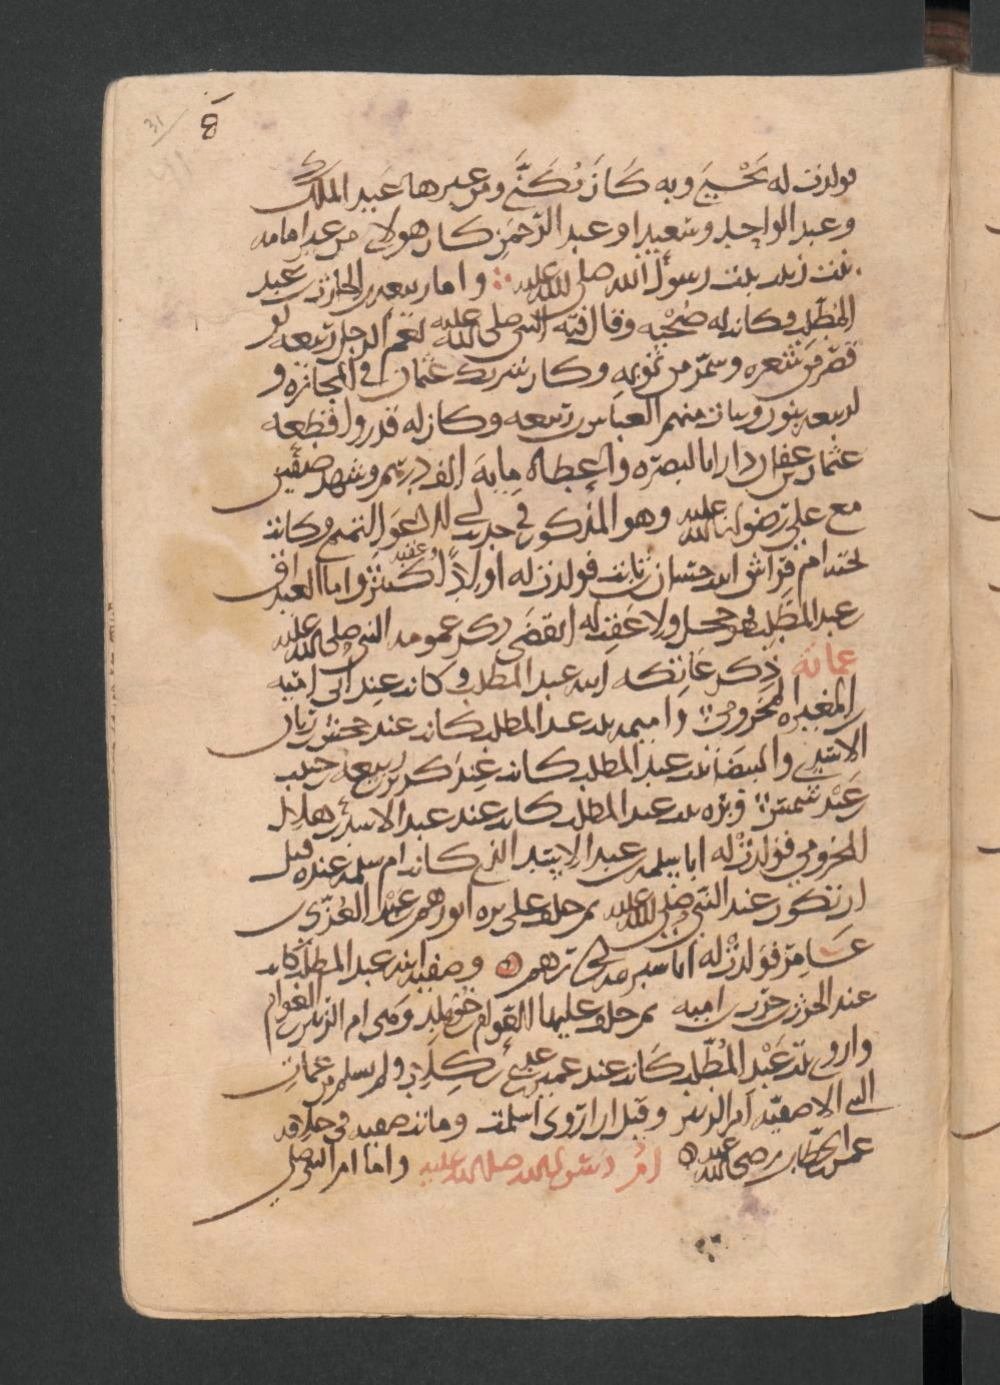 8
31
فولدت له يَحْيَى وبه كَانَ يُكَنَّى ومن غيرها عَبد الملك
وعبد الواحد وسَعيدا وعبد الرّحمَن كان هولاى من غير امامه
بنت زينب بنت رسول الله صلى الله عليه واما ربيعه بن الحارث بن عبد
المُطّلب وكانت له صُحْبه وقال فيه النبى صلى الله عليه نِعْم الرجل ربيعه لو
قصّر من شَعره وشمّر من ثوبِه وكان شريك عثمان فى التجاره و
لربيعه بنون وبنات منهم العبّاس بن ربيعه وكان له قدر واقطعه
عثمان بن عفان دارا بالبصرَه واعطاه مايهَ الف درهم وشهد صفّين
مع على رضوان الله عليه وهو المذكور فى
تحته ام فراش ابنت حسان بن ثابت فولدت له اولاداً وعقبه كثير واما الغيداق
بن عبد المطّلب فهو حجل ولا عَقِب له انقضى ذكر عمومه النبى صلى الله عليه
عماته ذِكر عاتكه ابنت عبد المطلب وكانت عند ابى اميه
بن المغيره المخزومى واميمه بنت عبد المطلب كانت عند جحش بن رياب
الاسدى والبيضا بنت عبد المطلب كانت عند كريز بن ربيعه بن حبيب
بن عَبْد شمس وبَرّه بنت عبد المطلب كانت عند عبد الاسد بن هلال
المخزومى فولدت له ابا سلمه بن عبد الاسد الذى كانت ام سلمه عنده قبل
ان تكون عند النبى صلى الله عليه ثم خلف على بره ابو رهم بن عَبْد العُزّى
عَامرى فوَلدت له ابا سبره بن ابى رهم وصفيه ابنه عبد المطلب كانت
عند الحرث بن حرب بن اميه ثم خلف عليها العَوام بن خويلد وهى ام الزبير بن العوام
واروى بنت عَبْد المُطّلب كَانت عند عمير بن عبد بن كِلاب ولم يسلم من عمات
النبى الا صفيّه ام الزبير وقيل ان ارْوى اسلمت وماتت صفيه فى خلافه
عمر بن الخطّاب رضى الله عنه امّ رسول الله صلى الله عليه واما ام النبى صلى